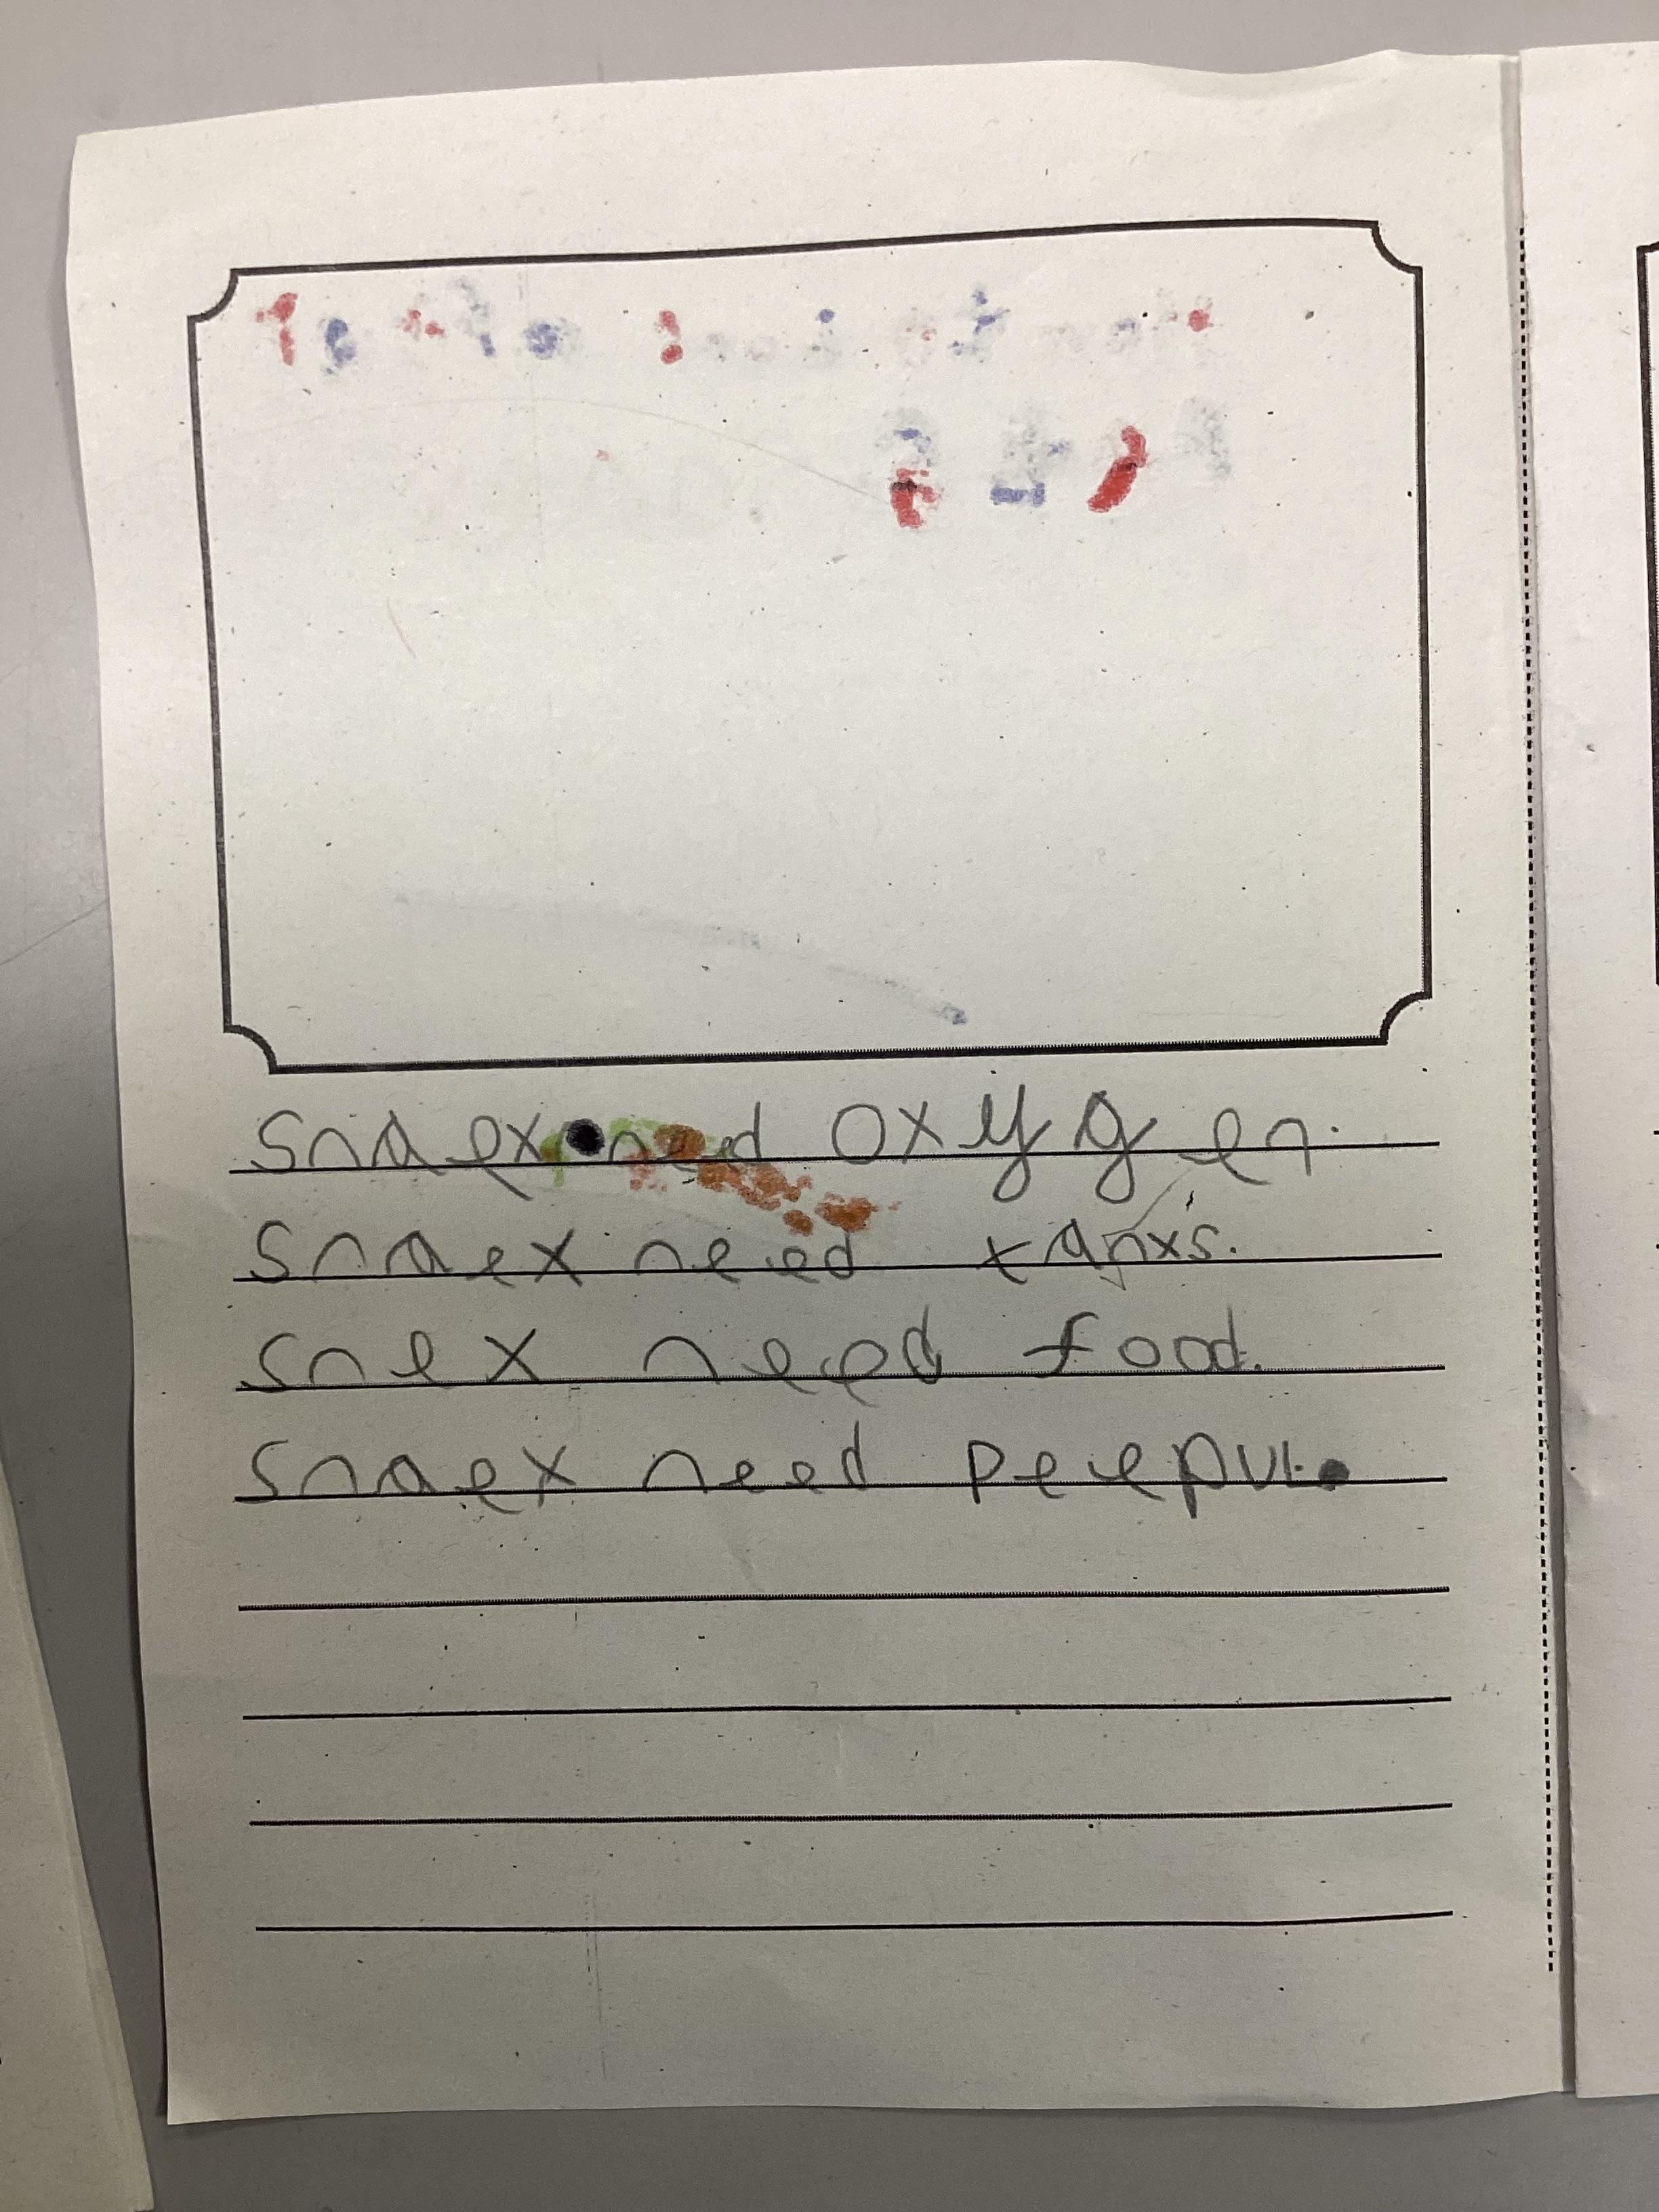 snaex need oxygen.
snaex need xanxs.
snex need food.
snaex need peepul.